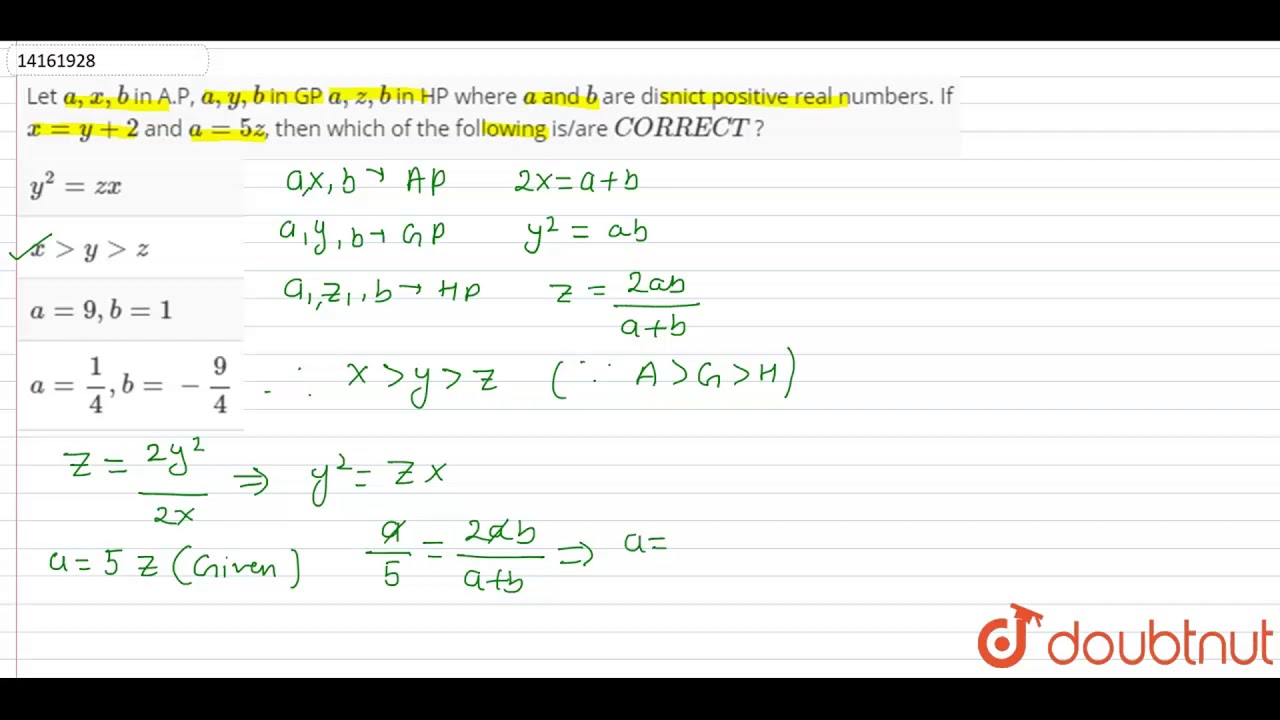 14161928
Let a, x, b in A.P, a, y, b in GP a, z, b in HP where a and b are disnict positive real numbers. If
x = y + 2 and a = 5z, then which of the following is/are CORRECT ?
y² = zx
x > y > z
a = 9, b = 1
a = 1/4, b = − 9/4
a,x, b → AP 2x = a+b
a, y, b → GP y² = ab
a, z, b → HP z = 2ab/(a+b)
∴ x > y > z (∵ A > G > H)
z = 2y²/2x ⇒ y² = zx
a = 5 z (Given) a/5 = 2ab/(a+b) ⇒ a =
doubtnut